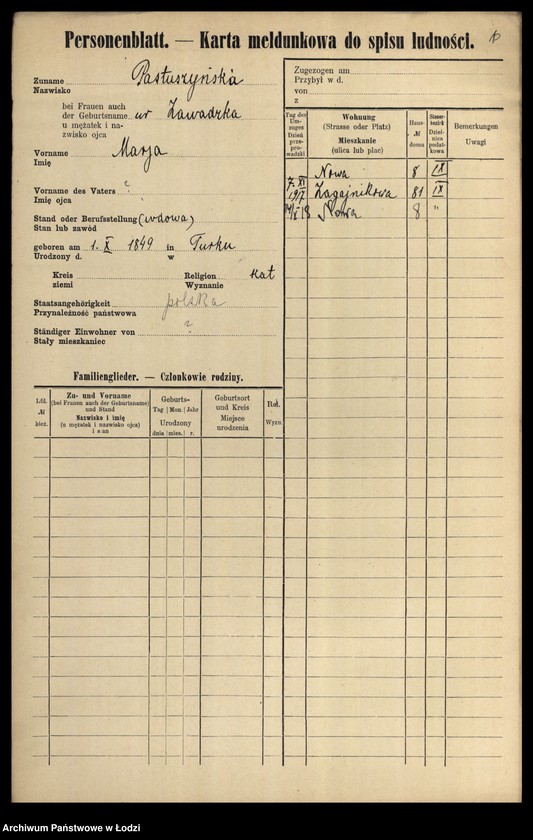 Personenblatt. — Karta meldunkowa do spisu ludności.
Zuname Pastuszyńska
Nazwisko
bei Frauen auch
der Geburtsname ur Zawadzka
u mężatek i na-
zwisko ojca
Vorname Marja
Imię
Vorname des Vaters ?
Imię ojca
Stand oder Berufsstellung (wdowa)
Stan lub zawód
geboren am 1. X 1849 in Turku
Urodzony d. w
Kreis Religion kat
ziemi Wyznanie
Staatsangehörigkeit polska
Przynależność państwowa
Ständiger Einwohner von ?
Stały mieszkaniec
Familienglieder. — Członkowie rodziny.
Lfd.
№
bież.
Zu- und Vorname
(bei Frauen auch der Geburtsname)
und Stand
Nazwisko i imię
(u mężatek i nazwisko ojca)
i stan
Geburts-
Tag Mon. Jahr
Urodzony
dnia mies. r.
Geburtsort
und Kreis
Miejsce
urodzenia
Rel.
Wyzn.
Zugezogen am
Przybył w d.
von
z
Tag des
Um-
zuges
Dzień
prze-
prowadzki
Wohnung
(Strasse oder Platz)
Mieszkanie
(ulica lub plac)
Haus-
№
domu
Steuer-
bezirk
Dziel-
nica
podat-
kowa
Bemerkungen
Uwagi
Nowa 8 IX
7. XI 1917 Zagajnikowa 81 IX
Nowa 8 "
Archiwum Państwowe w Łodzi